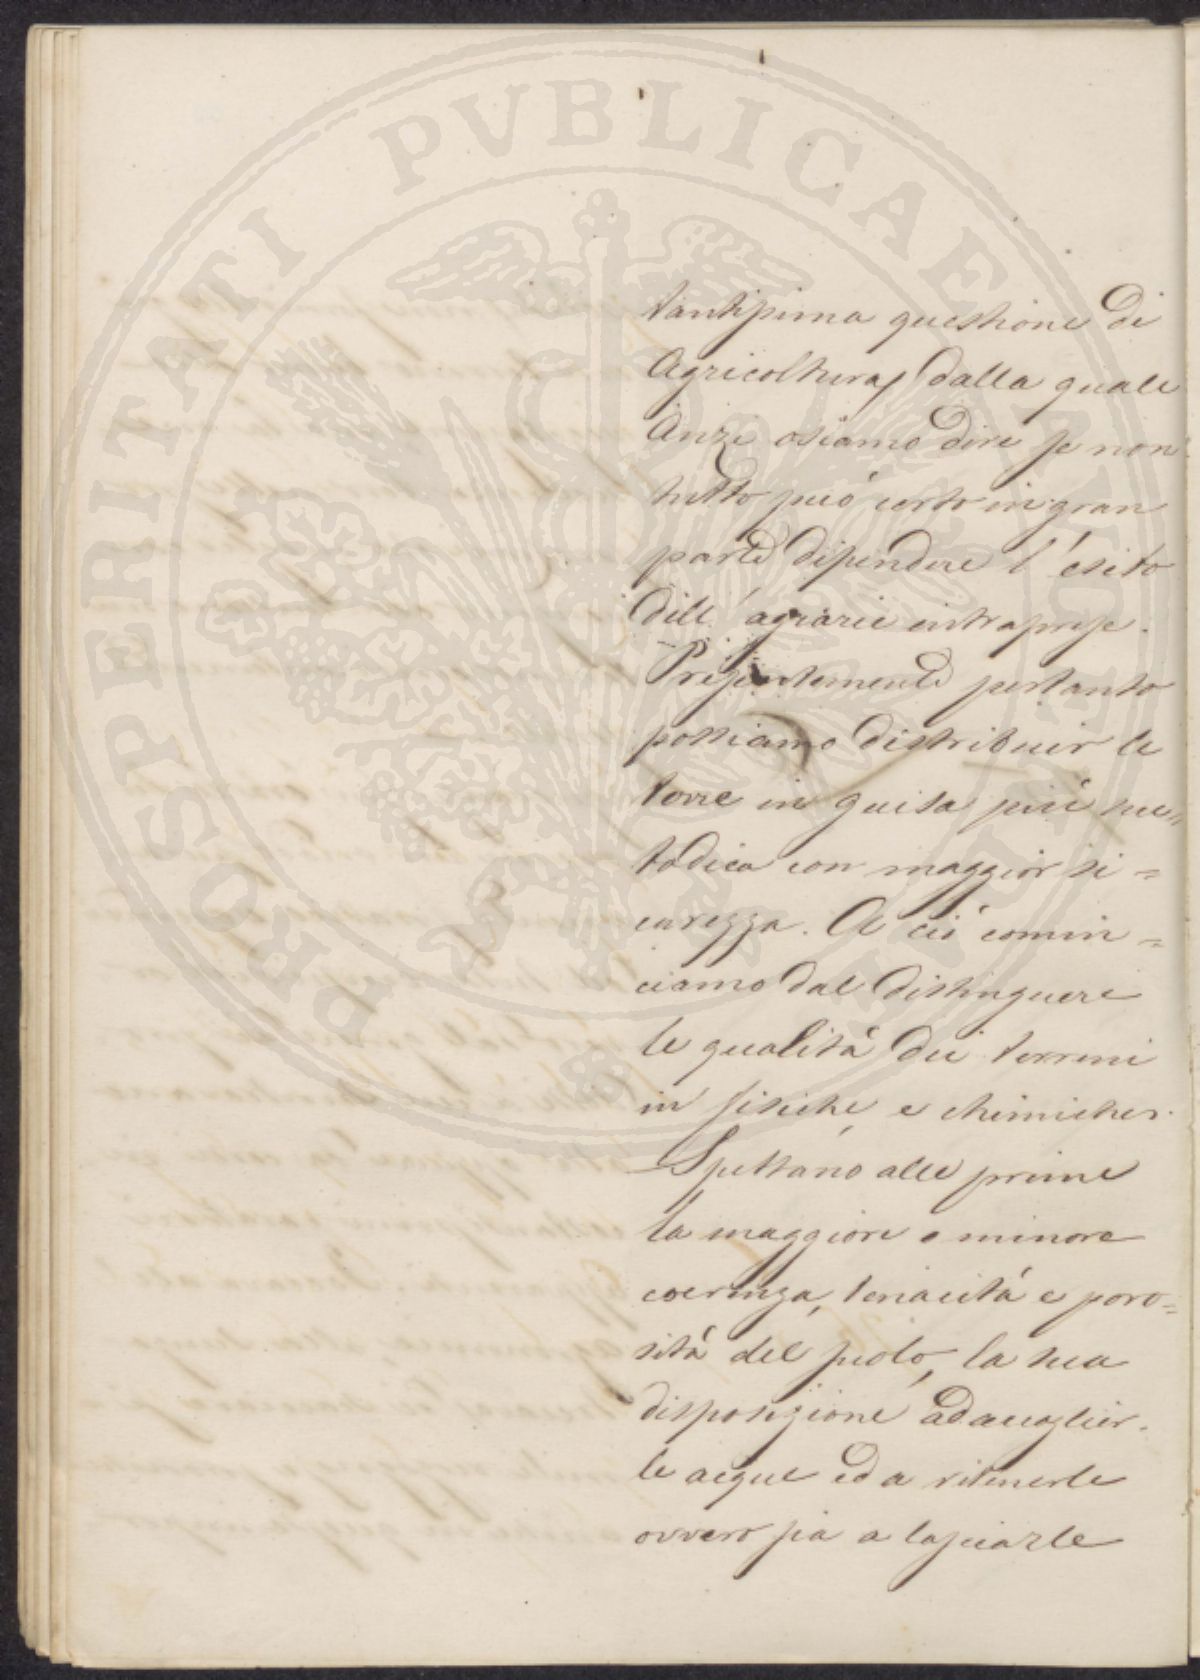 PROSPERITATI PUBLICAE AUGENDAE
tantissima questione di
Agricoltura, dalla quale
Anzi osiamo dire se non
tutto può certo in gran
parte dipendere l'esito
dell'agrarie intraprese.
Presentemente pertanto
possiamo distribuir le
terre in guisa più me=
todica con maggior si=
curezza. A ciò comin=
ciamo dal distinguere
le qualità dei terreni
in fisiche, e chimiche.
Spettano alle prime
la maggiore o minore
coerenza, tenacità e poro=
sità del suolo, la sua
disposizione ad accoglier
le acque ed a ritenerle
ovvero sia a lasciarle